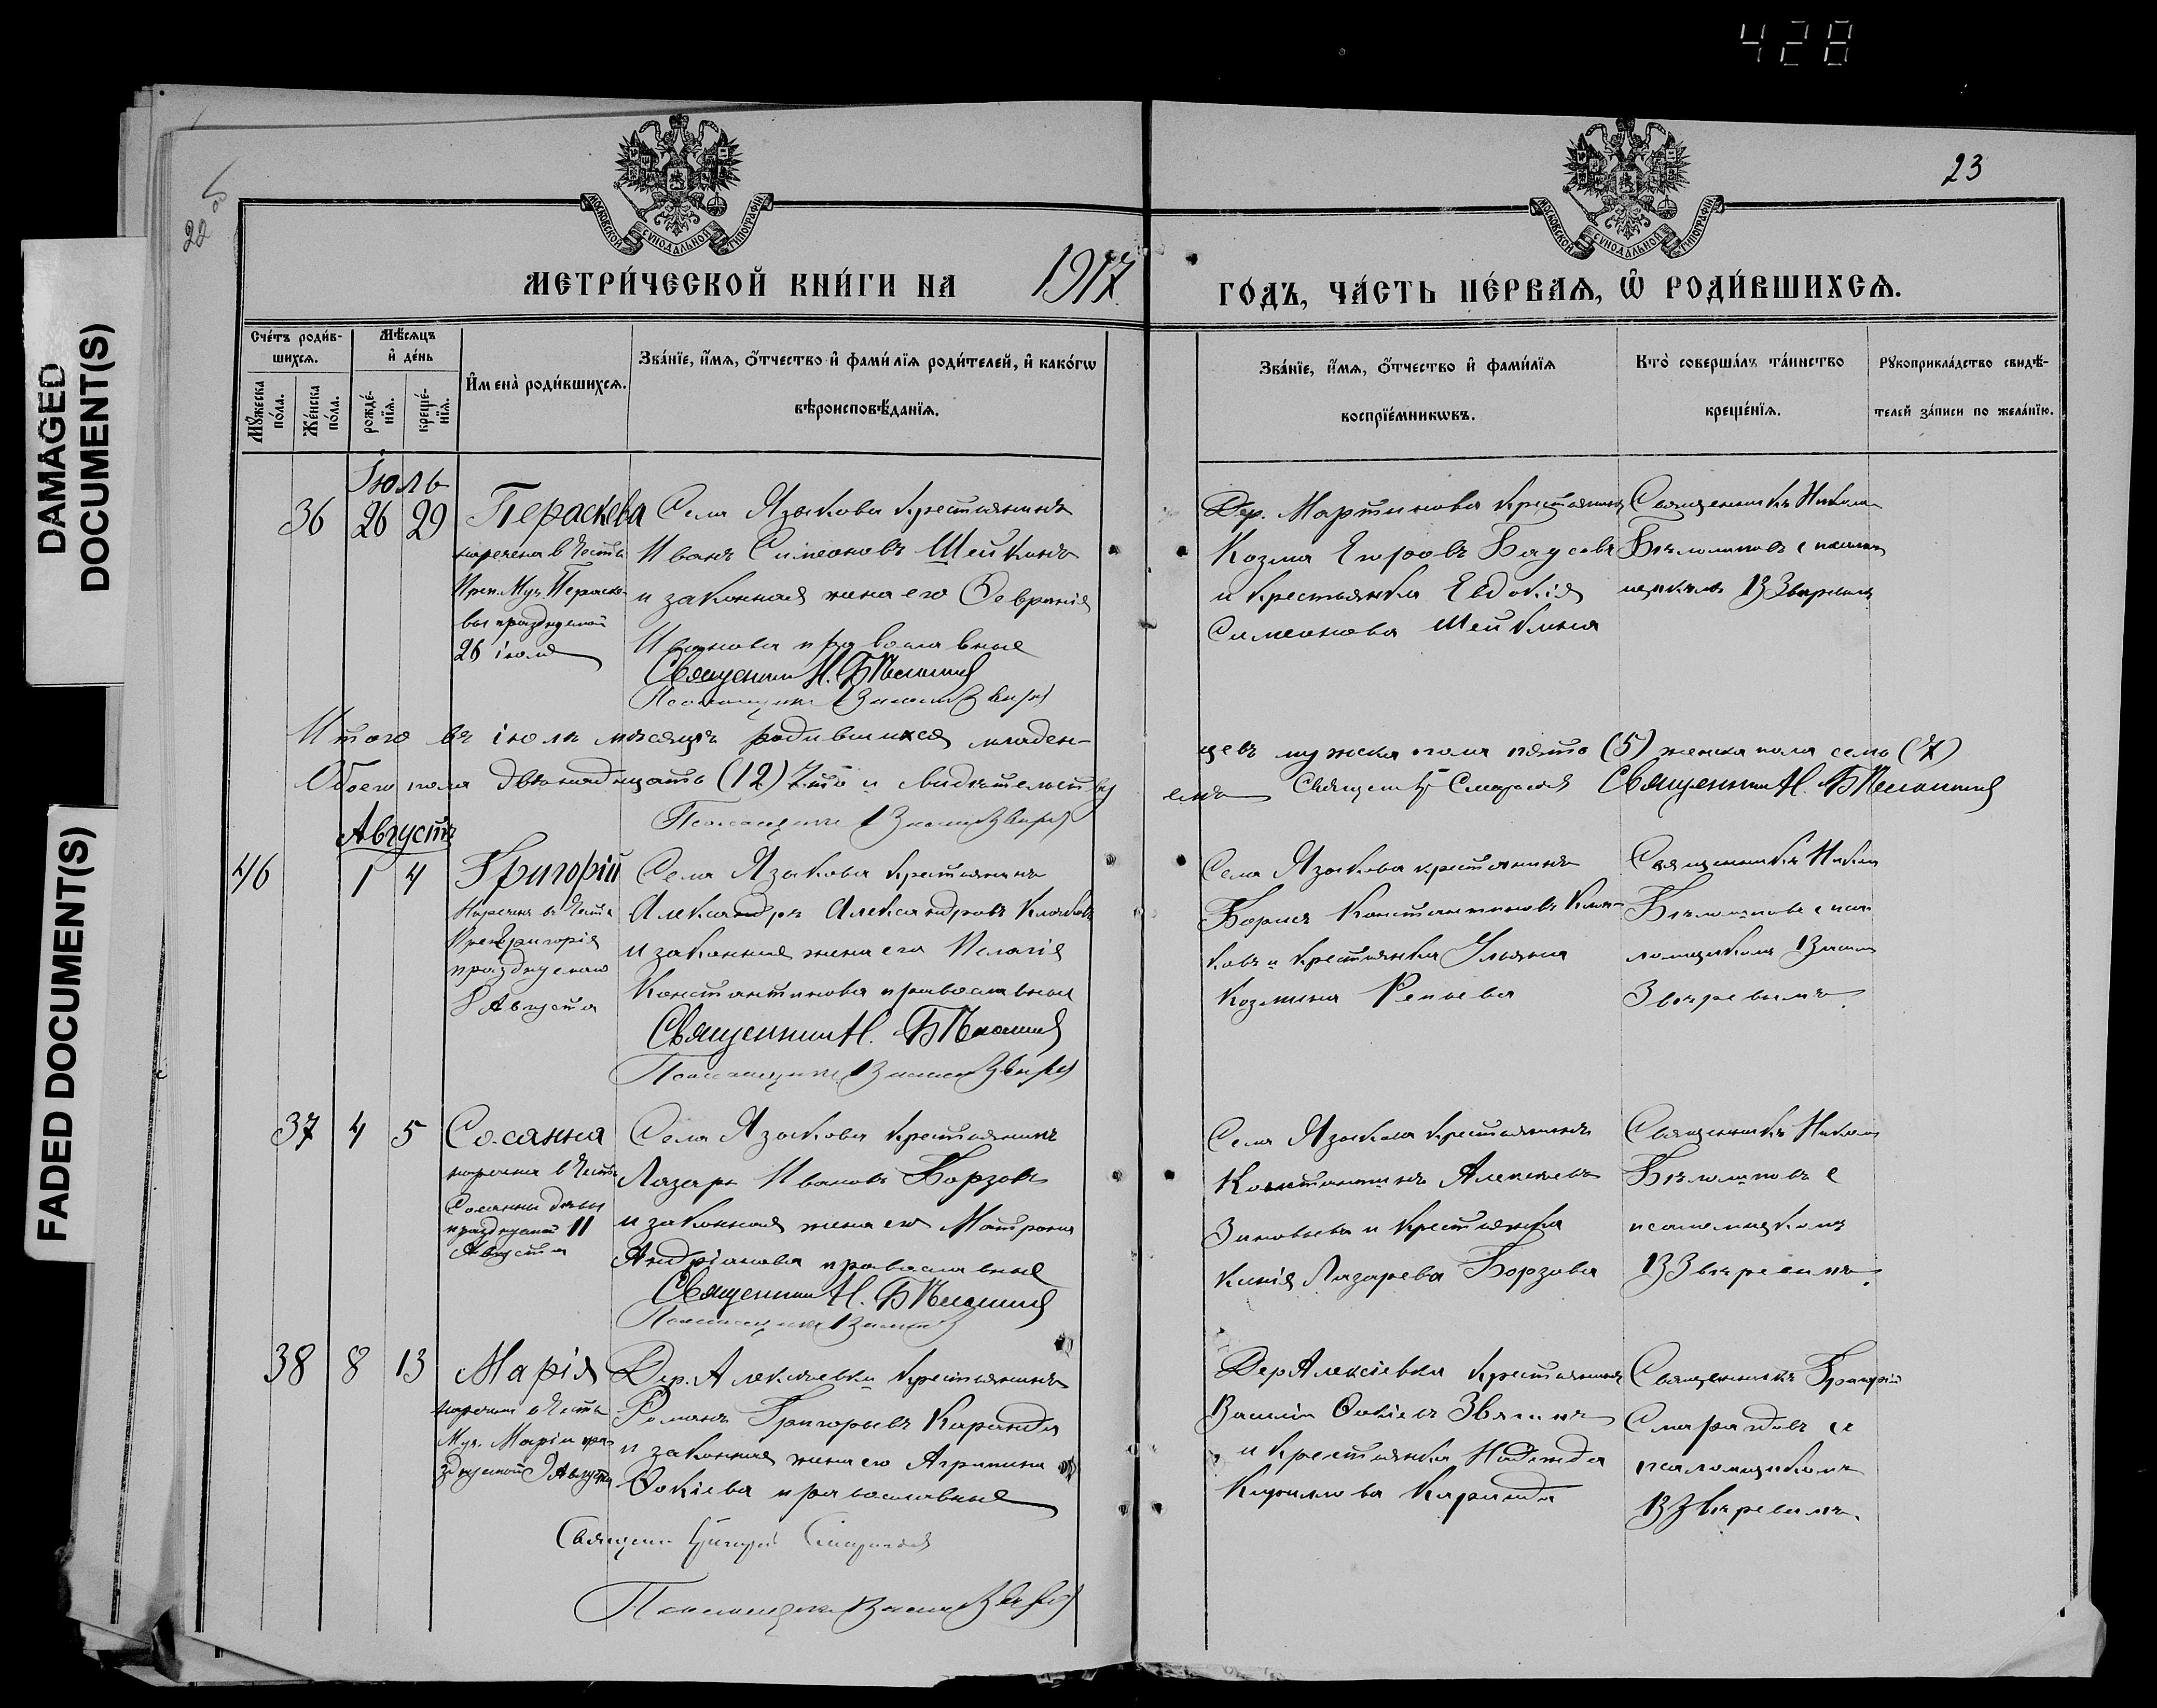 428
DAMAGED
DOCUMENT(S)
FADED DOCUMENT(S)
22 об
23
МОСКОВСКОЙ СѴНОДАЛЬНОЙ ТИПОГРАФІИ
МОСКОВСКОЙ СѴНОДАЛЬНОЙ ТИПОГРАФІИ
МЕТРИ́ЧЕСКОЙ КНИ́ГИ НА 1917 ГО́ДЪ, ЧА́СТЬ ПЕ́РВАѦ, Ѡ҆ РОДИ́ВШИХСѦ.
Сче́тъ роди́в-
шихсѧ.
Мꙋ́жеска
по́ла.
Же́нска
по́ла.
Мѣ́сѧцъ
и҆ де́нь
рожде́-
нїѧ.
креще́-
нїѧ.
И҆мена̀ роди́вшихсѧ.
Зва́нїе, и҆́мѧ, ѻ҆́тчество и҆ фами́лїѧ роди́телей, и҆ како́гѡ
вѣроисповѣ́данїѧ.
Зва́нїе, и҆́мѧ, ѻ҆́тчество и҆ фами́лїѧ
воспрїе́мникѡвъ.
Кто̀ соверша́лъ та́инство
креще́нїѧ.
Рꙋкоприкла́дство свидѣ́-
телей за́писи по жела́нїю.
Іюль
36 26 29 Пераскева
наречена в честь
Преп. Муч. Параске-
вы празднуемой
26 іюля
Села Языкова крестьянинъ
Иванъ Симеоновъ Шейкинъ
и законная жена его Февронія
Иванова православные
Священник Н.
Псаломщик
Дер. Мартинова крестьянинъ
Козма Егоровъ
и крестьянка Евдокія
Симеонова Шейкина
Священникъ Никол
с псалом
щикомъ В Зверевымъ
Итого въ іюлѣ мѣсяцѣ родившихся младен-
цевъ мужска пола пять (5) женска пола семь (7)
Обоего пола двѣнадцать (12) Что и свидѣтельству
емъ Священ. Священник Н.
Псаломщик
Августъ
46 1 4 Григорій
Наречен въ честь
Преп Григорія
празднуемаго
8 Августа
Села Языкова крестьянинъ
Александръ Александровъ
и законная жена его Пелагія
Константинова православные
Священник Н.
Псаломщик
Села Языкова крестьянинъ
Борисъ Константиновъ
ковъ и крестьянка Ульяна
Козмина Репьева
Священникъ Никол
с пса
ломщикомъ Васил
Зверевымъ
37 4 5 Сосанна
наречена в честь
Сосанны дѣвы
празднуемой 11
Августа
Села Языкова крестьянинъ
Лазарь Ивановъ Борзовъ
и законная жена его Матрона
Андріанова православные
Священник Н.
Псаломщик
Села Языкова крестьянинъ
Константинъ Алексѣевъ
Зиновьевъ и крестьянка
Ксенія Лазарева Борзова
Священникъ Никол
с
псаломщикомъ
В Зверевымъ
38 8 13 Марія
наречена в честь
Муч. Маріи пра-
здуемой 9 Августа
Дер. Алексѣевки крестьянинъ
Романъ Григорьевъ Каранда
и законная жена его Агрипина
Фокіева православные
Священ Григорій
Псаломщик
Дер Алексіевки крестьянинъ
Василій Фокіевъ
и крестьянка Надежда
Кирилова Каранда
Священникъ Григорій
Смарагдовъ съ
псаломщикомъ
В Зверевымъ